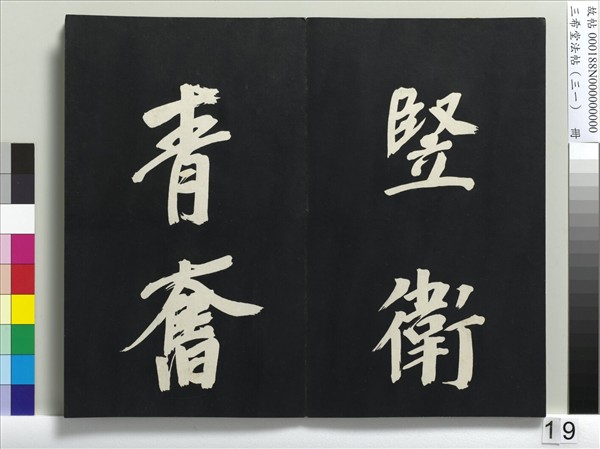 竪衛
青奮
故帖 000188N000000000
三希堂法帖（三一） 冊
19